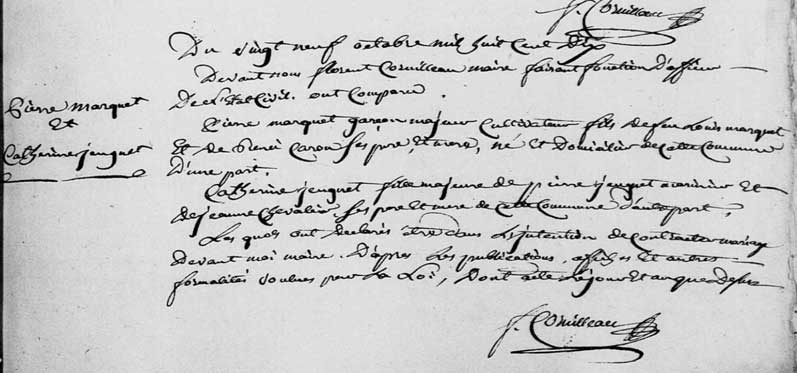 f. Cornilleau
Du vingt neuf octobre mil huit cent dix
Devant nous florent Cornilleau maire faisant fonction D'officier
De L'Etat Civil. ont Comparu.
Pierre marquet
Et
Catherine jeuquet
Pierre marquet garcon majeur Cultivateur fils de feu Louis marquet
Et de Renée Caron ses pere, Et mere, né Et Domicilier de cette Commune
D'une part.
Catherine jeuquet fille majeure de pierre jeuquet Et
de jeanne Chevalier, ses pere Et mere de cette Commune d'autre part,
Les quels ont declarés être dans L'intention de Contracter mariage
devant moi maire. D'après Les publications, affiches Et autres
formalités voulues par La Loi, Dont acte Le jour Et an que dessus
f. Cornilleau